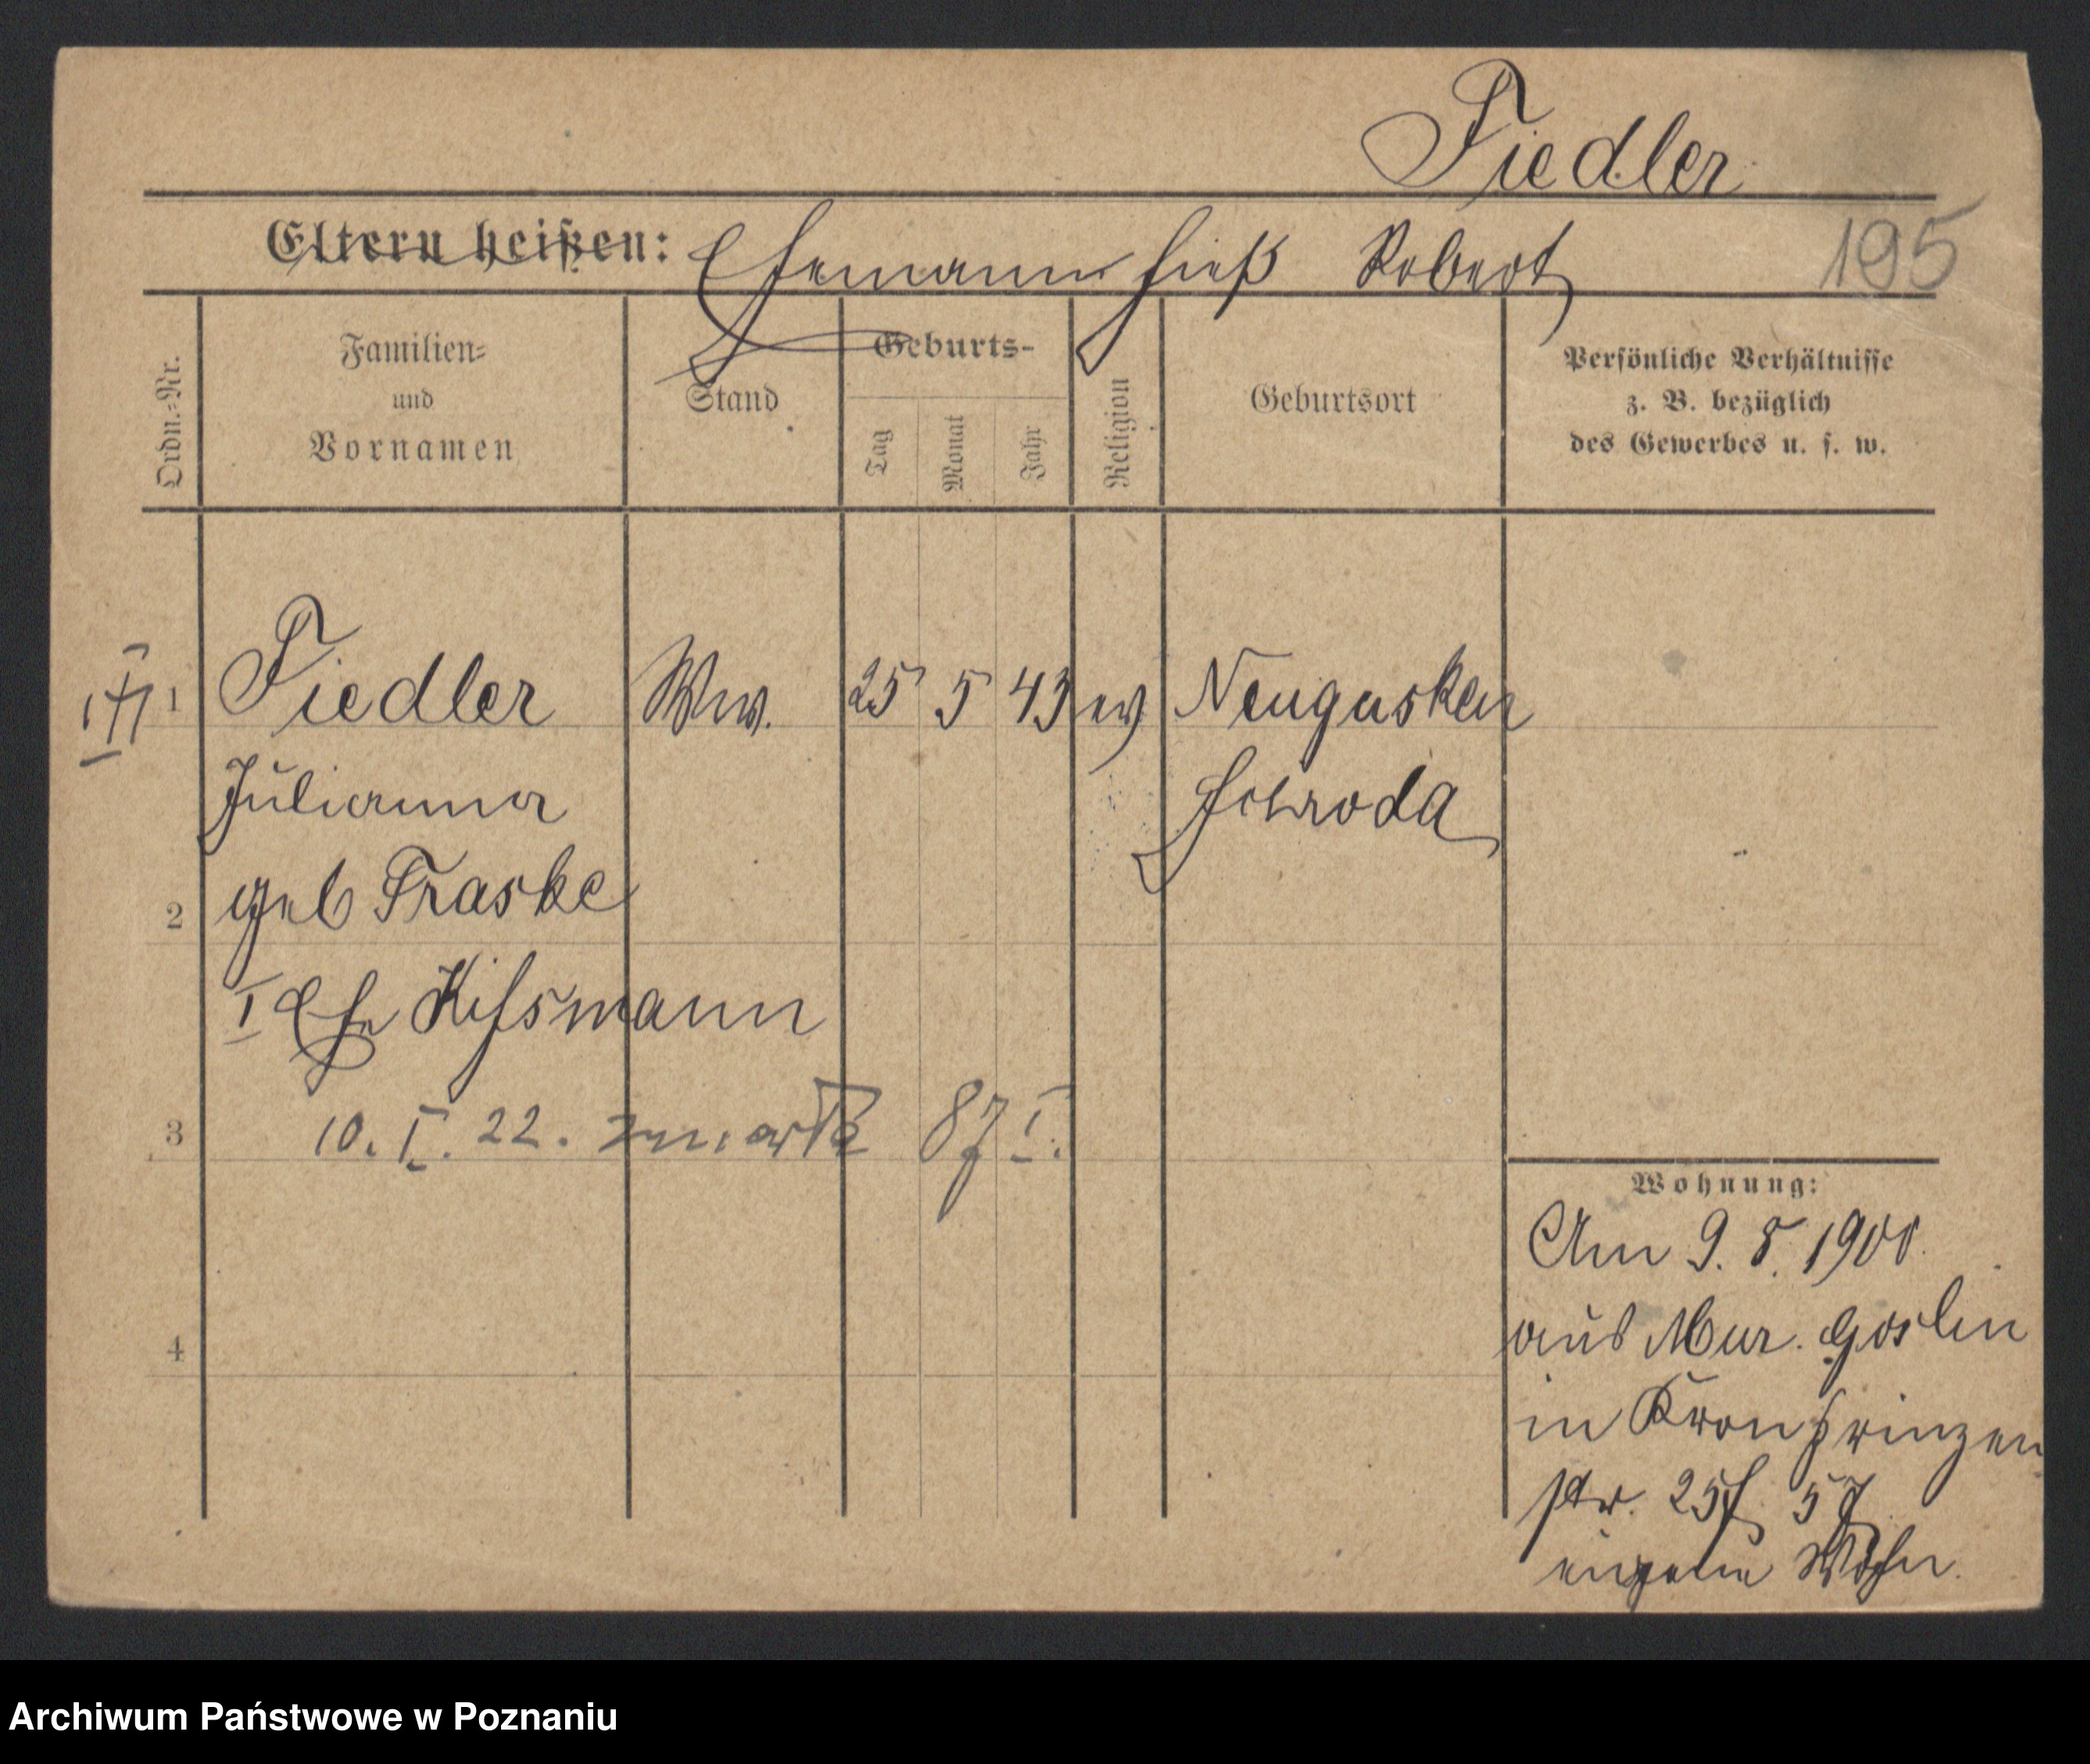 Fiedler
Eltern heißen: Ehemann hieß Robert 195
Ordn.=Nr.
Familien=
und
Vornamen
Stand
Geburts-
Tag
Monat
Jahr
Religion
Geburtsort
Persönliche Verhältnisse
z. B. bezüglich
des Gewerbes u. s. w.
1 Fiedler Ww. 25 5 43 ev Neugasken
Julianna Schroda
2 geb Fraske
I Ehe Kissmann
3 10. I. 22. zmarła 87 I.
4
Wohnung:
Am 9. 5. 1900.
aus Mur. Goslin
in Kronprinzen
str. 25
eigene Wohn.
Archiwum Państwowe w Poznaniu